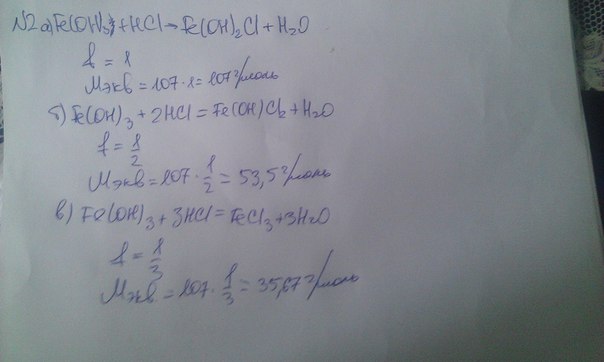 N2 а) Fe(OH)3 + HCl → Fe(OH)2Cl + H2O
f = 1
Мэкв = 107 · 1 = 107 г/моль
б) Fe(OH)3 + 2HCl = Fe(OH)Cl2 + H2O
f = 1/2
Мэкв = 107 · 1/2 = 53,5 г/моль
в) Fe(OH)3 + 3HCl = FeCl3 + 3H2O
f = 1/3
Мэкв. = 107 · 1/3 = 35,67 г/моль